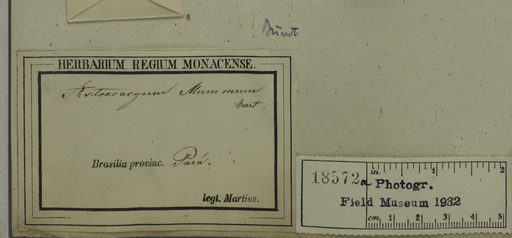 HERBARIUM REGIUM MONACENSE.
Astrocaryum Murumuru
Mart
Brasilia provinc. Pará.
legt. Martius.
in. 1 2
18572a Photogr.
Field Museum 1932
cm 1 2 3 4 5